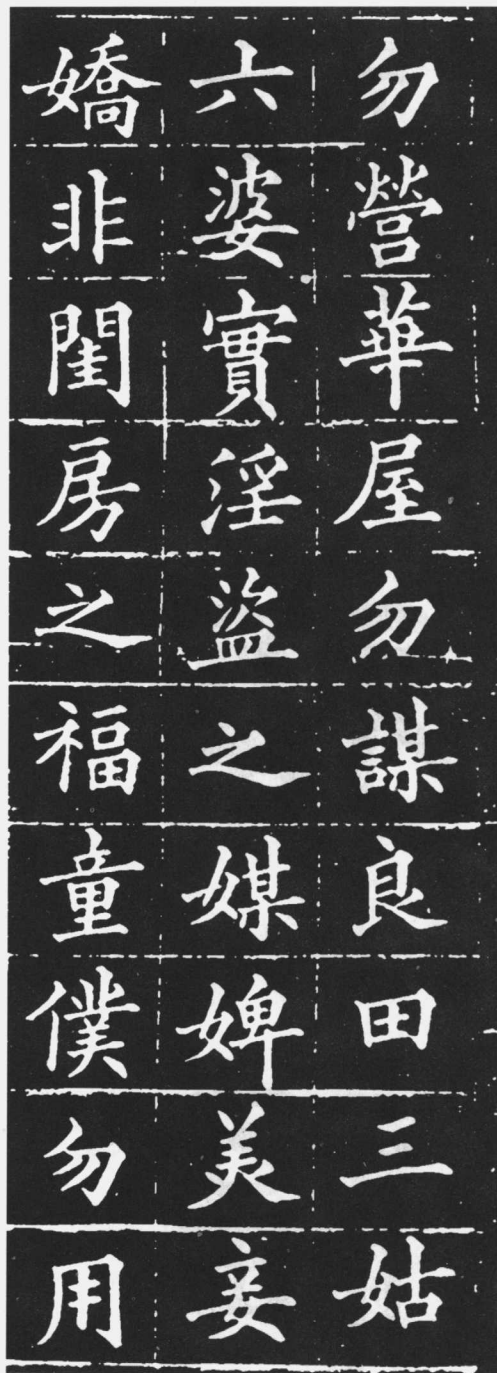 勿營華屋勿謀良田三姑
六婆實淫盜之媒婢美妾
嬌非閨房之福童僕勿用